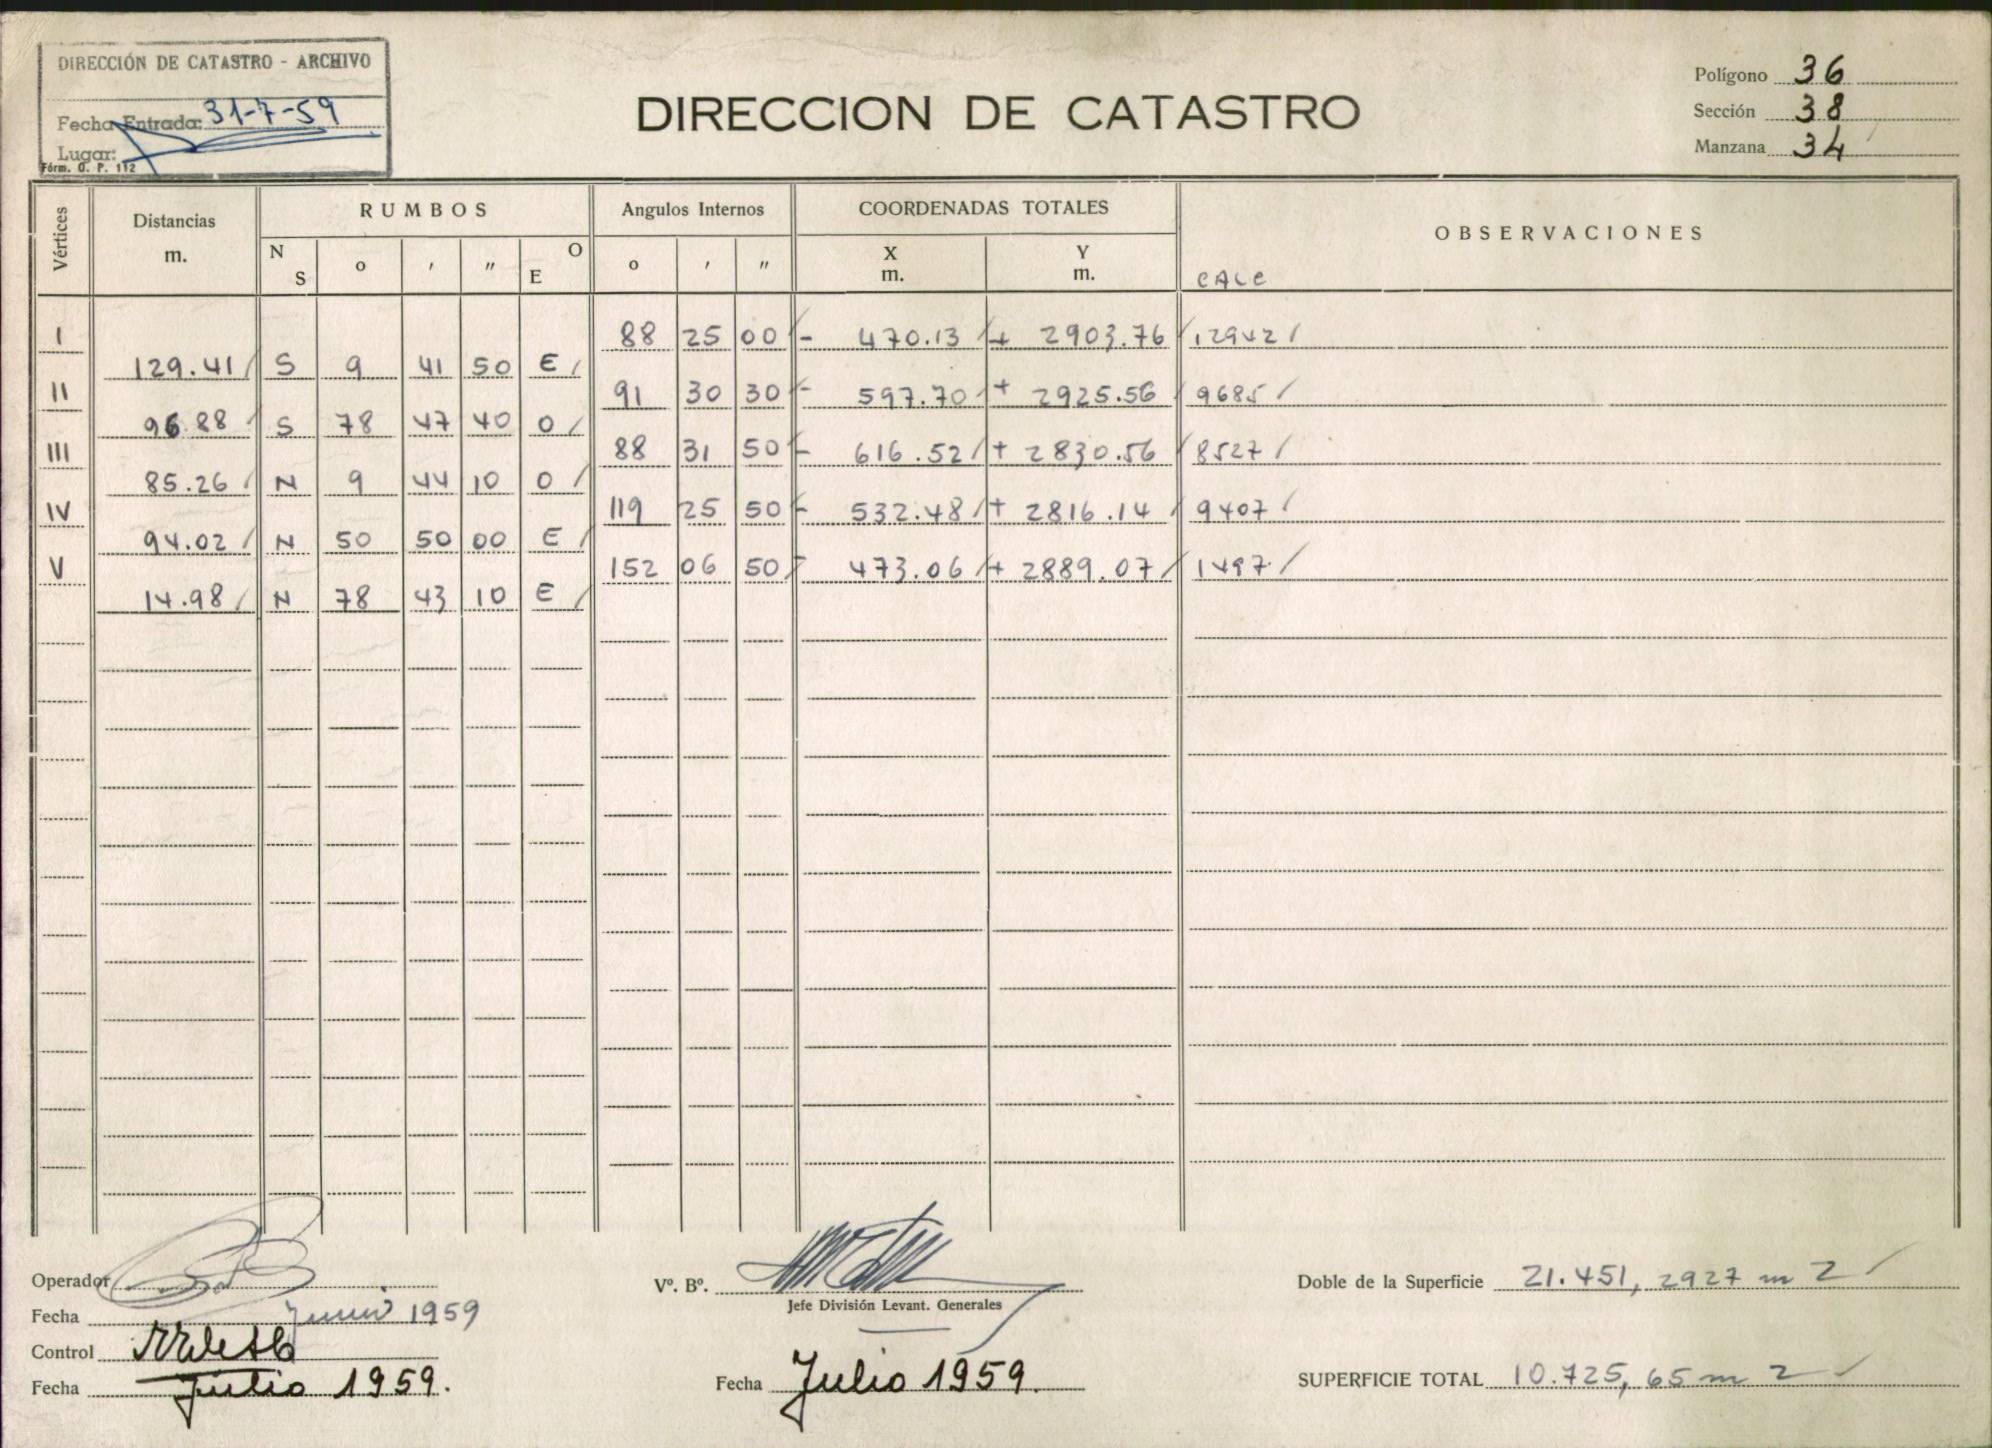 DIRECCIÓN DE CATASTRO - ARCHIVO
Fecha Entrada: 31-7-59
Lugar:
Fórm. O. P. 112
DIRECCION DE CATASTRO
Polígono 36
Sección 38
Manzana 34
Vértices Distancias m. RUMBOS N S o ′ ″ O E Angulos Internos o ′ ″ COORDENADAS TOTALES X m. Y m. OBSERVACIONES
CALC
I 88 25 00 - 470.13 + 2903.76 12942
129.41 S 9 41 50 E
II 91 30 30 - 597.70 + 2925.56 9685
96.88 S 78 47 40 O
III 88 31 50 - 616.52 + 2830.56 8527
85.26 N 9 44 10 O
IV 119 25 50 - 532.48 + 2816.14 9407
94.02 N 50 50 00 E
V 152 06 50 - 473.06 + 2889.07 1497
14.98 N 78 43 10 E
Operador
Fecha Junio 1959
Control
Fecha Julio 1959.
Vº. Bº.
Jefe División Levant. Generales
Fecha Julio 1959.
Doble de la Superficie 21.451, 2927 m 2
SUPERFICIE TOTAL 10.725, 65 m 2